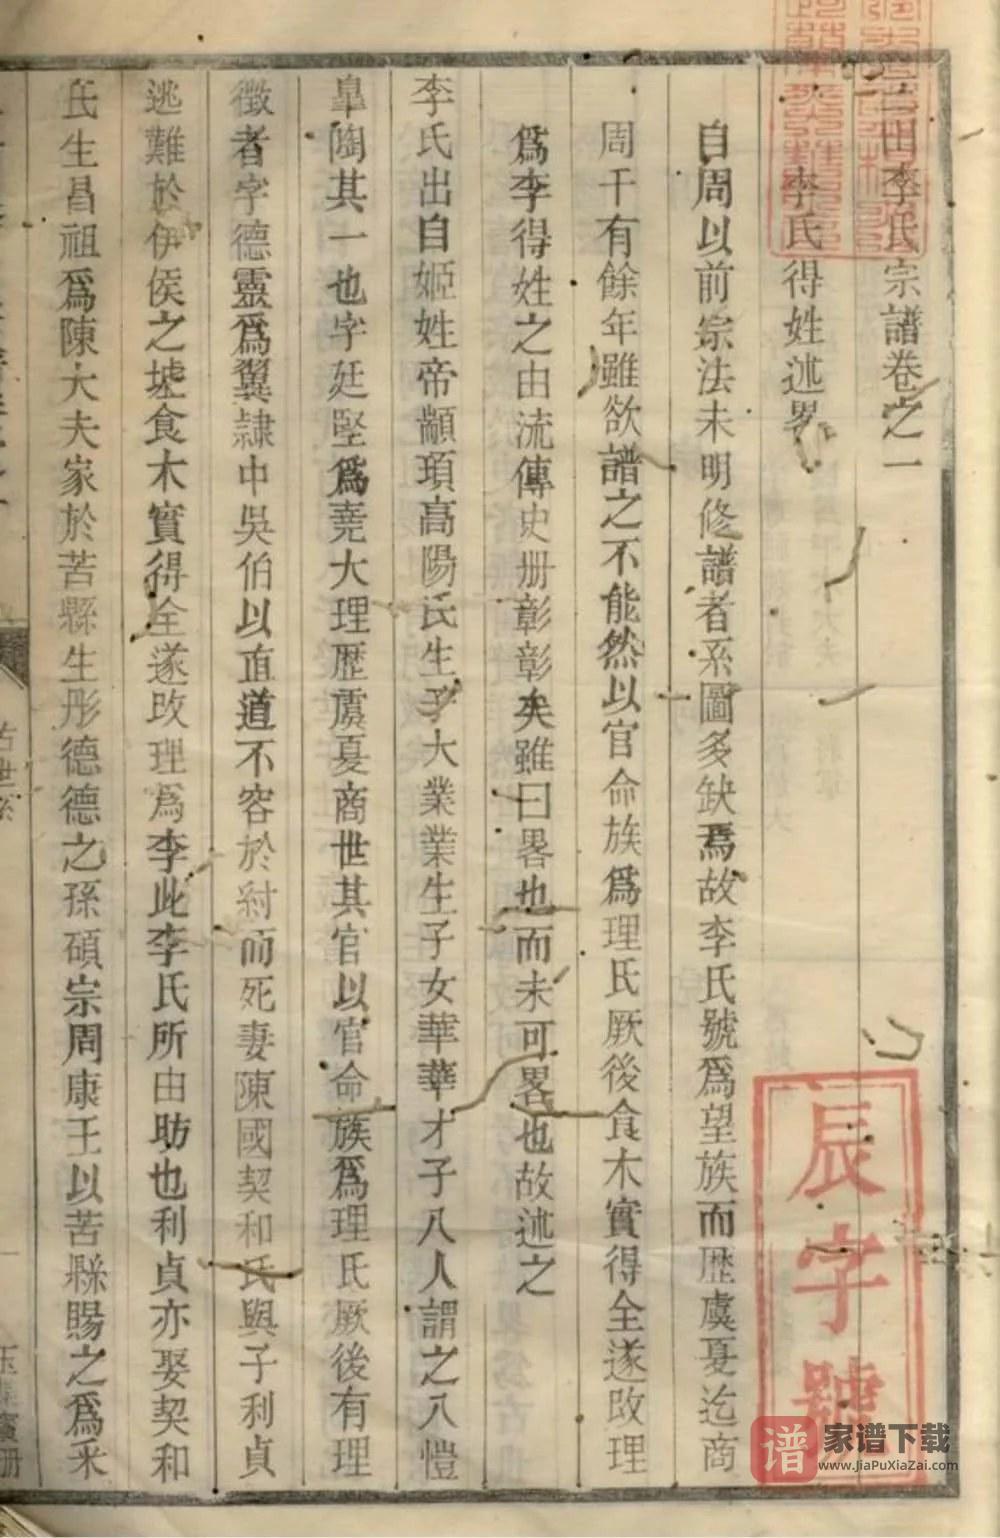 三田李氏宗譜卷之一
李氏得姓述畧
自周以前宗法未明修譜者系圖多缺焉故李氏號爲望族而歴虞夏迄商
周千有餘年雖欲譜之不能然以官命族爲理氏厥後食木實得全遂改理
爲李得姓之由流傳史册彰彰矣雖曰畧也而未可畧也故述之
李氏出自姬姓帝顓頊高陽氏生子大業業生子女華華才子八人謂之八愷
臯陶其一也字廷堅爲堯大理歴虞夏商世其官以官命族爲理氏厥後有理
徵者字德靈爲翼隸中吳伯以直道不容於紂而死妻陳國契和氏與子利貞
逃難於伊侯之墟食木實得全遂改理爲李此李氏所由昉也利貞亦娶契和
氏生昌祖爲陳大夫家於苦縣生彤德德之孫碩宗周康王以苦縣賜之爲采
古世系
一
辰字號
谱
家谱下载
www.JiaPuXiaZai.com